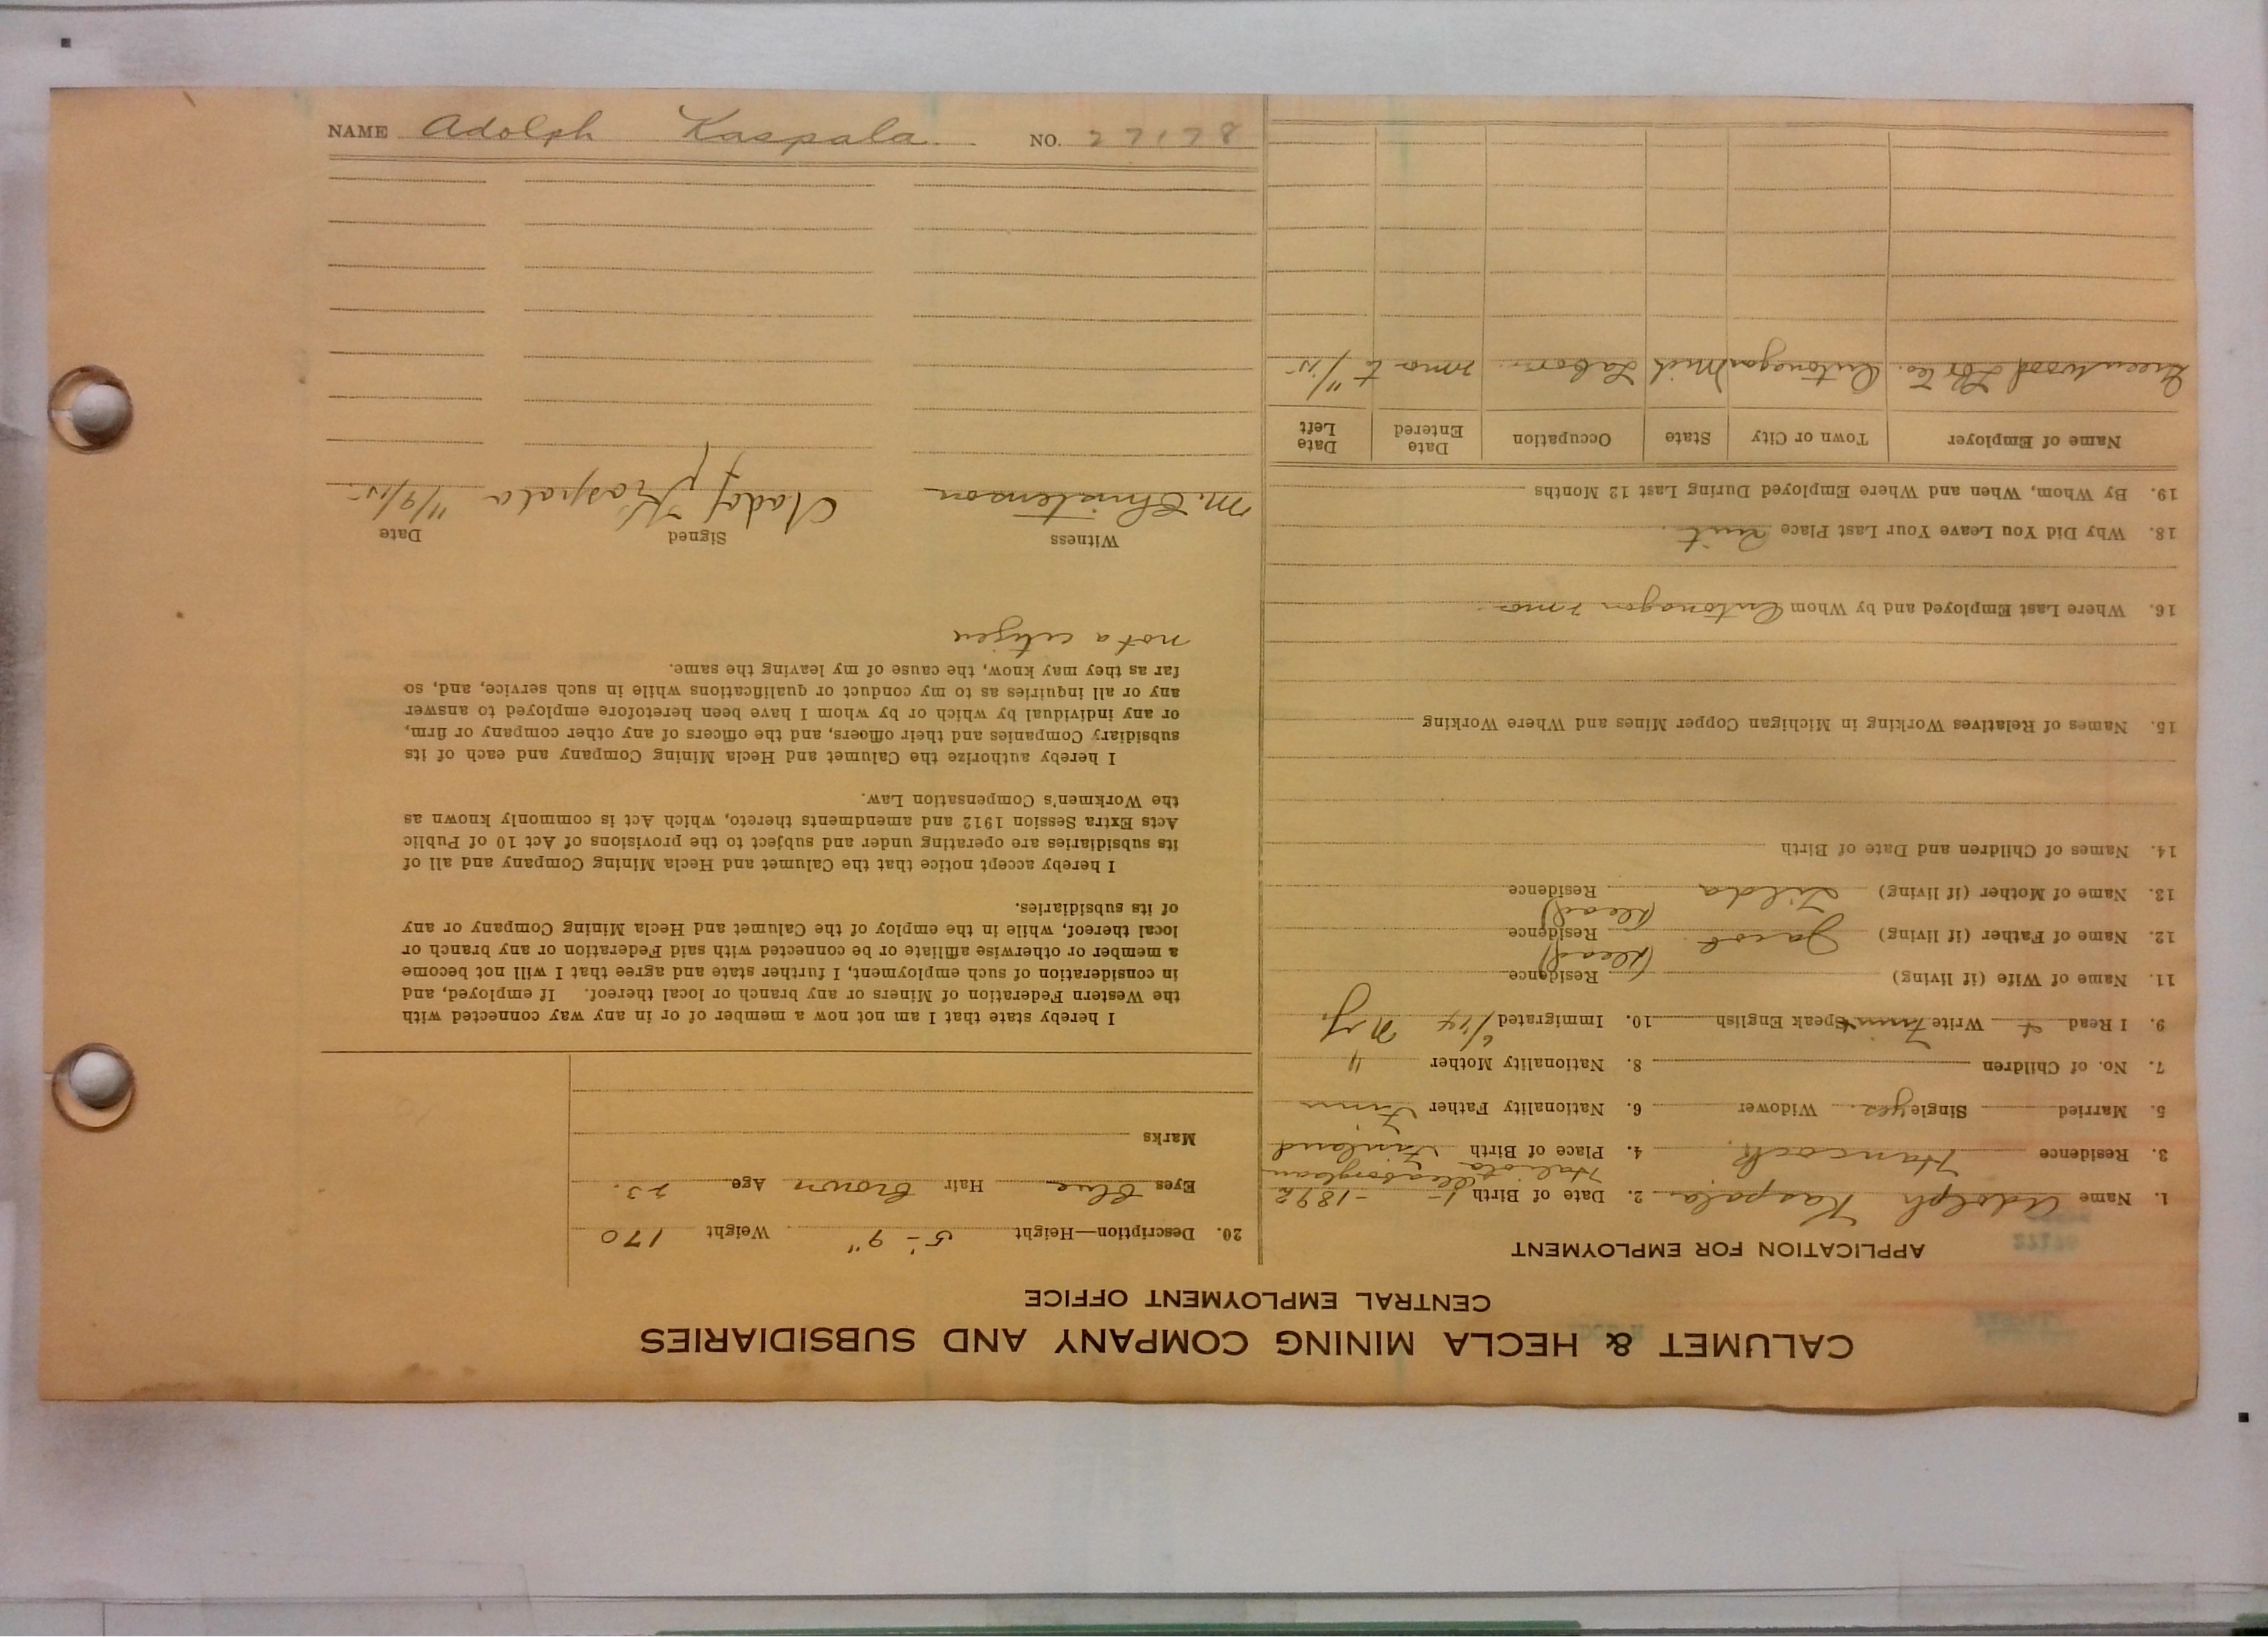 NAME Adolph Kaspala NO. 27178
CALUMET & HECLA MINING COMPANY AND SUBSIDIARIES
CENTRAL EMPLOYMENT OFFICE
APPLICATION FOR EMPLOYMENT
1. Name Adolph Kaspala 2. Date of Birth 1892
3. Residence Hancock 4. Place of Birth Finland
5. Married Single yes. Widower 6. Nationality Father Finn
7. No. of Children 8. Nationality Mother "
9. I Read + Write Finn Speak English 10. Immigrated 6/14 N.Y.
11. Name of Wife (if living) Residence
12. Name of Father (if living) Jacob Residence (dead)
13. Name of Mother (if living) Tilda Residence (dead)
14. Names of Children and Date of Birth
15. Names of Relatives Working in Michigan Copper Mines and Where Working
16. Where Last Employed and by Whom Ontonagon mo.
18. Why Did You Leave Your Last Place Quit.
19. By Whom, When and Where Employed During Last 12 Months
Name of Employer Town or City State Occupation Date Entered Date Left
Greenwood Lbr Co. Ontonagon Mich Labor mo to 11/15
20. Description—Height 5'- 9" Weight 170
Eyes Blue Hair Brown Age 23.
Marks
I hereby state that I am not now a member of or in any way connected with
the Western Federation of Miners or any branch or local thereof. If employed, and
in consideration of such employment, I further state and agree that I will not become
a member or otherwise affiliate or be connected with said Federation or any branch or
local thereof, while in the employ of the Calumet and Hecla Mining Company or any
of its subsidiaries.
I hereby accept notice that the Calumet and Hecla Mining Company and all of
its subsidiaries are operating under and subject to the provisions of Act 10 of Public
Acts Extra Session 1912 and amendments thereto, which Act is commonly known as
the Workmen's Compensation Law.
I hereby authorize the Calumet and Hecla Mining Company and each of its
subsidiary Companies and their officers, and the officers of any other company or firm,
or any individual by which or by whom I have been heretofore employed to answer
any or all inquiries as to my conduct or qualifications while in such service, and, so
far as they may know, the cause of my leaving the same.
not a citizen
Witness Signed Date
M. Christenson Aadof Kaspala 11/9/15